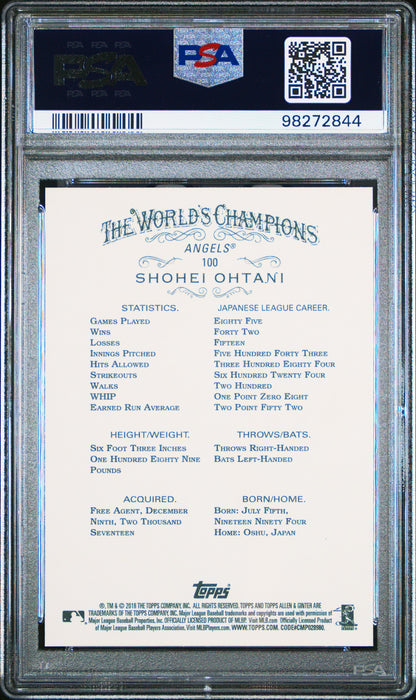 PSA PSA PSA
PSA
PSA PSA PSA
PSA
98272844
THE WORLD'S CHAMPIONS
ANGELS®
100
SHOHEI OHTANI
STATISTICS. JAPANESE LEAGUE CAREER.
GAMES PLAYED EIGHTY FIVE
WINS FORTY TWO
LOSSES FIFTEEN
INNINGS PITCHED FIVE HUNDRED FORTY THREE
HITS ALLOWED THREE HUNDRED EIGHTY FOUR
STRIKEOUTS SIX HUNDRED TWENTY FOUR
WALKS TWO HUNDRED
WHIP ONE POINT ZERO EIGHT
EARNED RUN AVERAGE TWO POINT FIFTY TWO
HEIGHT/WEIGHT. THROWS/BATS.
SIX FOOT THREE INCHES THROWS RIGHT-HANDED
ONE HUNDRED EIGHTY NINE BATS LEFT-HANDED
POUNDS
ACQUIRED. BORN/HOME.
FREE AGENT, DECEMBER BORN: JULY FIFTH,
NINTH, TWO THOUSAND NINETEEN NINETY FOUR
SEVENTEEN HOME: OSHU, JAPAN
Topps
®, TM & © 2018 THE TOPPS COMPANY, INC. ALL RIGHTS RESERVED. TOPPS AND TOPPS ALLEN & GINTER ARE
TRADEMARKS OF THE TOPPS COMPANY, INC. Major League Baseball trademarks and copyrights are used with permission of
Major League Baseball Properties, Inc. OFFICIALLY LICENSED PRODUCT OF MLBP. Visit MLB.com Officially Licensed Product of
Major League Baseball Players Association. Visit MLBPlayers.com. WWW.TOPPS.COM. CODE#CMP028980.